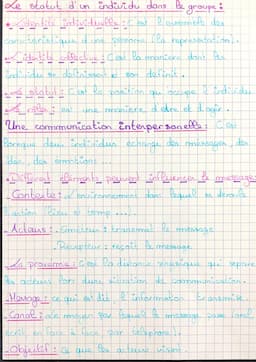 Le statut d'un individu dans le groupe :
• L'identité individuelle : C'est l'ensemble des
caractéristiques d'une personne (la représentation).
L'identité collective : C'est la manière dont les
individus se définissent et son définit.
Le statut : C'est la position qu'occupe l'individu
Le rôle : est une manière d'être et d'agir.
Une communication interpersonelle : C'est
lorsque deux individus échange des messages, des
idées, des émotions...
• Différent éléments peuvent influencer le message :
- Contexte : L'environnement dans lequel se déroule
l'action (lieu et temp...).
- Acteurs : - Emetteur : transmet le message
- Recepteur : reçoit le message
La proxemie : C'est la distance physique qui sépare
les acteurs lors d'une situation de communication.
- Message : ce qui est dit, l'information transmise.
- Canal : le moyen par lequel le message passe (oral,
écrit, en face à face, par téléphone).
- Objectif : Ce que les acteurs visent.